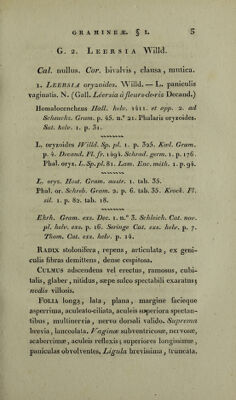 GRAMINEÆ. § I. 5
G. 2. LEERSIA Willd.
Cal. nullus. Cor. bivalvis, clausa, mutica.
1. LEERSIA oryzoides. Willd. — L. paniculis
vaginatis. N. (Gall. Léersia à fleurs de ris Decand.)
Hemalocenchrus Hall. helv. 1411. et opp. 2. ad
Scheuchz. Gram. p. 45. n.° 21. Phalaris oryzoides.
Sut. helv. 1. p. 31.
L. oryzoides Willd. Sp. pl. 1. p. 325. Kœl. Gram.
p. 4. Decand. Fl. fr. 1494. Schrad. germ. 1. p. 176.
Phal. oryz. L. Sp. pl. 81. Lam. Enc. méth. 1. p. 94.
L. oryz. Host. Gram. austr. 1. tab. 35.
Phal. or. Schreb. Gram. 2. p. 6. tab. 35. Krock. Fl.
sil. 1. p. 82. tab. 18.
Ehrh. Gram. exs. Dec. 1. n.° 3. Schleich. Cat. nov.
pl. helv. exs. p. 16. Seringe Cat. exs. helv. p. 7.
Thom. Cat. exs. helv. p. 14.
RADIX stolonifera, repens, articulata, ex geni-
culis fibras demittens, dense cespitosa.
CULMUS adscendens vel erectus, ramosus, cubi-
talis, glaber, nitidus, sæpe sulco spectabili exaratus;
nodis villosis.
FOLIA longa, lata, plana, margine facieque
asperrima, aculeato-ciliata, aculeis superiora spectan-
tibus, multinervia, nervo dorsali valido. Suprema
brevia, lanceolata. Vaginæ subventricosæ, nervosæ,
scaberrimæ, aculeis reflexis; superiores longissimæ,
paniculas obvolventes. Ligula brevissima, truncata.